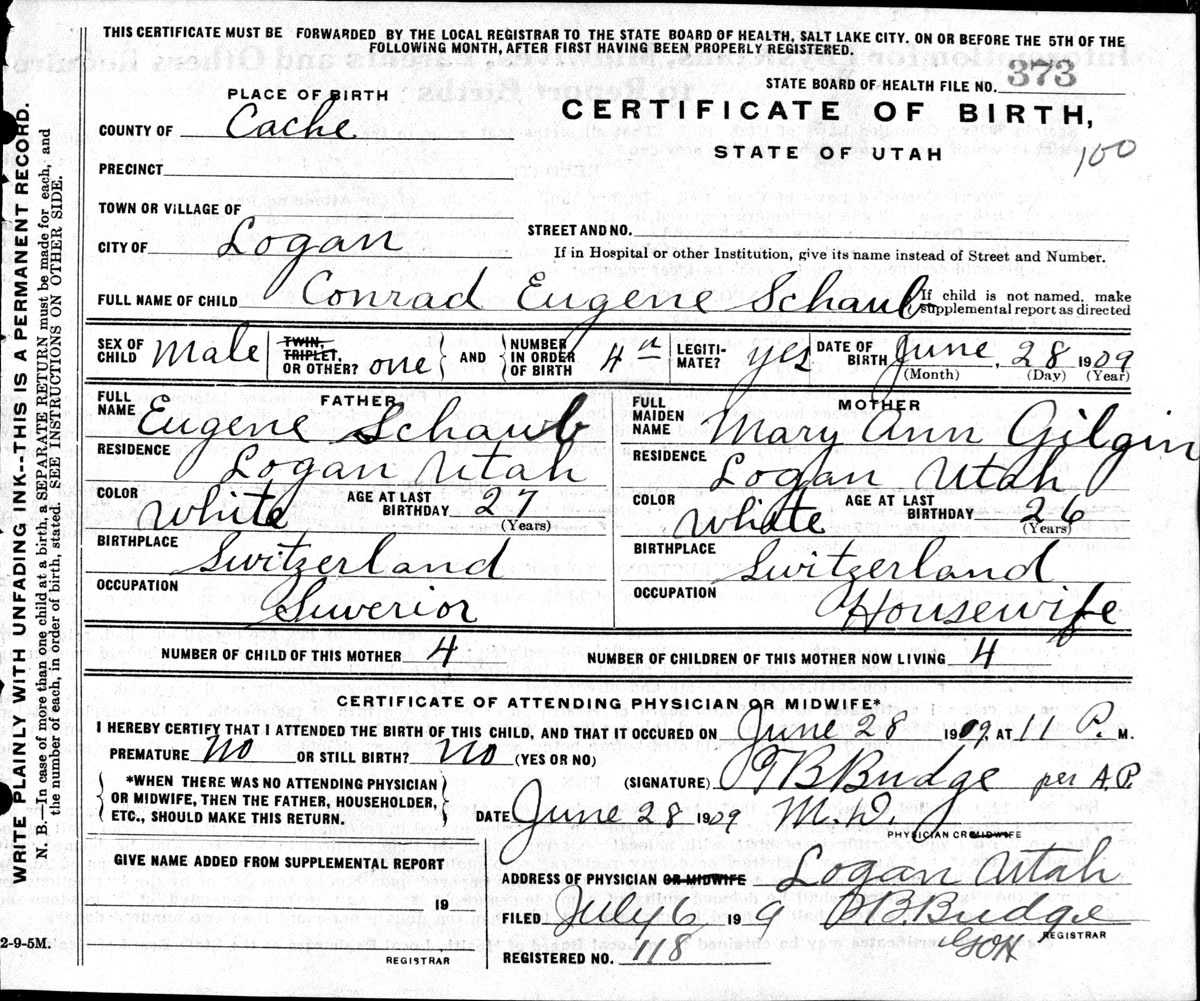 THIS CERTIFICATE MUST BE FORWARDED BY THE LOCAL REGISTRAR TO THE STATE BOARD OF HEALTH, SALT LAKE CITY, ON OR BEFORE THE 5TH OF THE
FOLLOWING MONTH, AFTER FIRST HAVING BEEN PROPERLY REGISTERED.
STATE BOARD OF HEALTH FILE NO. 373
PLACE OF BIRTH
CERTIFICATE OF BIRTH,
COUNTY OF Cache
STATE OF UTAH
100
PRECINCT
TOWN OR VILLAGE OF
CITY OF Logan
STREET AND NO.
If in Hospital or other Institution, give its name instead of Street and Number.
FULL NAME OF CHILD Conrad Eugene Schaub
If child is not named, make
supplemental report as directed
SEX OF CHILD Male
TWIN, TRIPLET, OR OTHER? one
AND NUMBER IN ORDER OF BIRTH 4th
LEGITIMATE? yes
DATE OF BIRTH June, 28 1909
(Month) (Day) (Year)
FATHER
FULL NAME Eugene Schaub
RESIDENCE Logan Utah
COLOR White AGE AT LAST BIRTHDAY 27
(Years)
BIRTHPLACE Switzerland
OCCUPATION Suverior
MOTHER
FULL MAIDEN NAME Mary Ann Gilgin
RESIDENCE Logan Utah
COLOR White AGE AT LAST BIRTHDAY 26
(Years)
BIRTHPLACE Switzerland
OCCUPATION Housewife
NUMBER OF CHILD OF THIS MOTHER 4 NUMBER OF CHILDREN OF THIS MOTHER NOW LIVING 4
CERTIFICATE OF ATTENDING PHYSICIAN OR MIDWIFE*
I HEREBY CERTIFY THAT I ATTENDED THE BIRTH OF THIS CHILD, AND THAT IT OCCURED ON June 28 1909, AT 11 P. M.
PREMATURE No OR STILL BIRTH? No (YES OR NO)
*WHEN THERE WAS NO ATTENDING PHYSICIAN
OR MIDWIFE, THEN THE FATHER, HOUSEHOLDER,
ETC., SHOULD MAKE THIS RETURN.
(SIGNATURE) T B Budge per A.P.
DATE June 28 1909 M.D.
PHYSICIAN OR MIDWIFE
GIVE NAME ADDED FROM SUPPLEMENTAL REPORT
19
REGISTRAR
ADDRESS OF PHYSICIAN OR MIDWIFE Logan Utah
FILED July 6 19 9 T B Budge
REGISTRAR
GOH
REGISTERED NO. 118
WRITE PLAINLY WITH UNFADING INK--THIS IS A PERMANENT RECORD.
N. B.—In case of more than one child at a birth, a SEPARATE RETURN must be made for each, and
the number of each, in order of birth, stated. SEE INSTRUCTIONS ON OTHER SIDE.
2-9-5M.